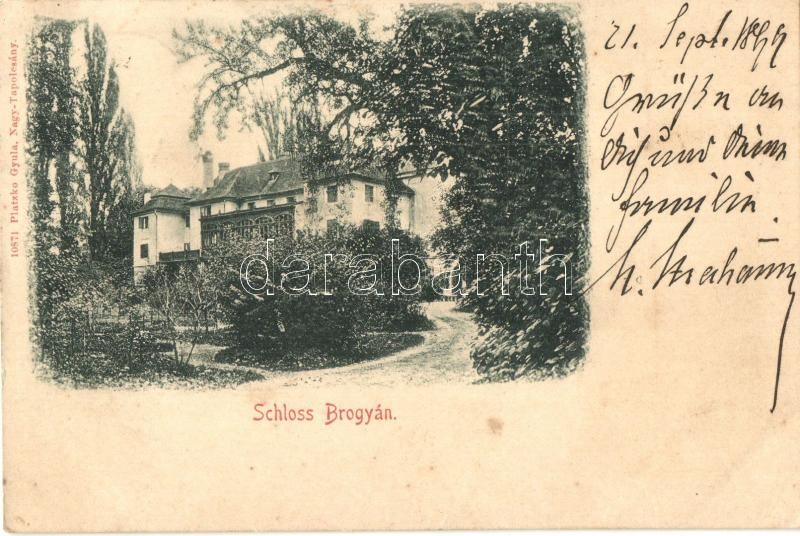 10871 Platzko Gyula, Nagy-Tapolcsány.
21. Sept. 1899
Grüße an
Dich und Deine
Familie.
darabanth
Schloss Brogyán.